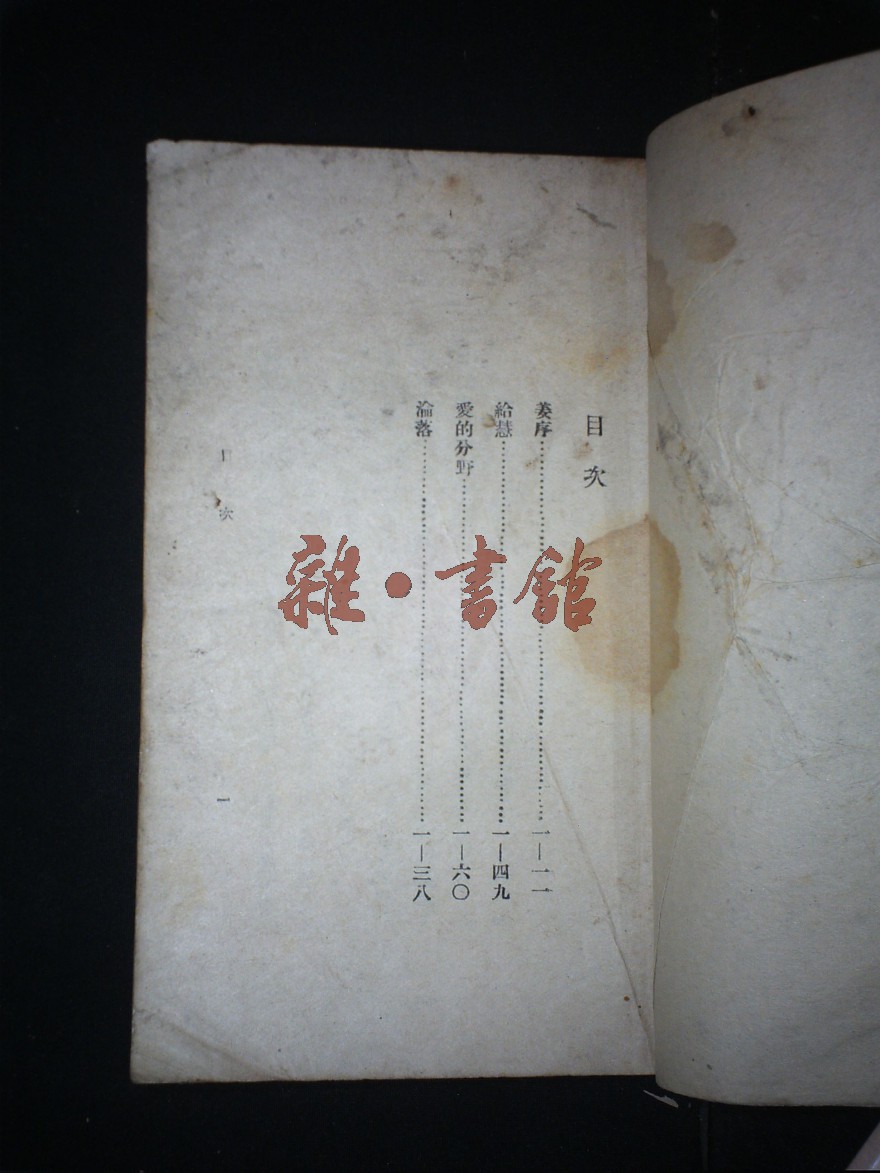 目次
姜序……一—一一
給慧……一—四九
愛的分野……一—六〇
淪落……一—三八
目次
一
雜•書館